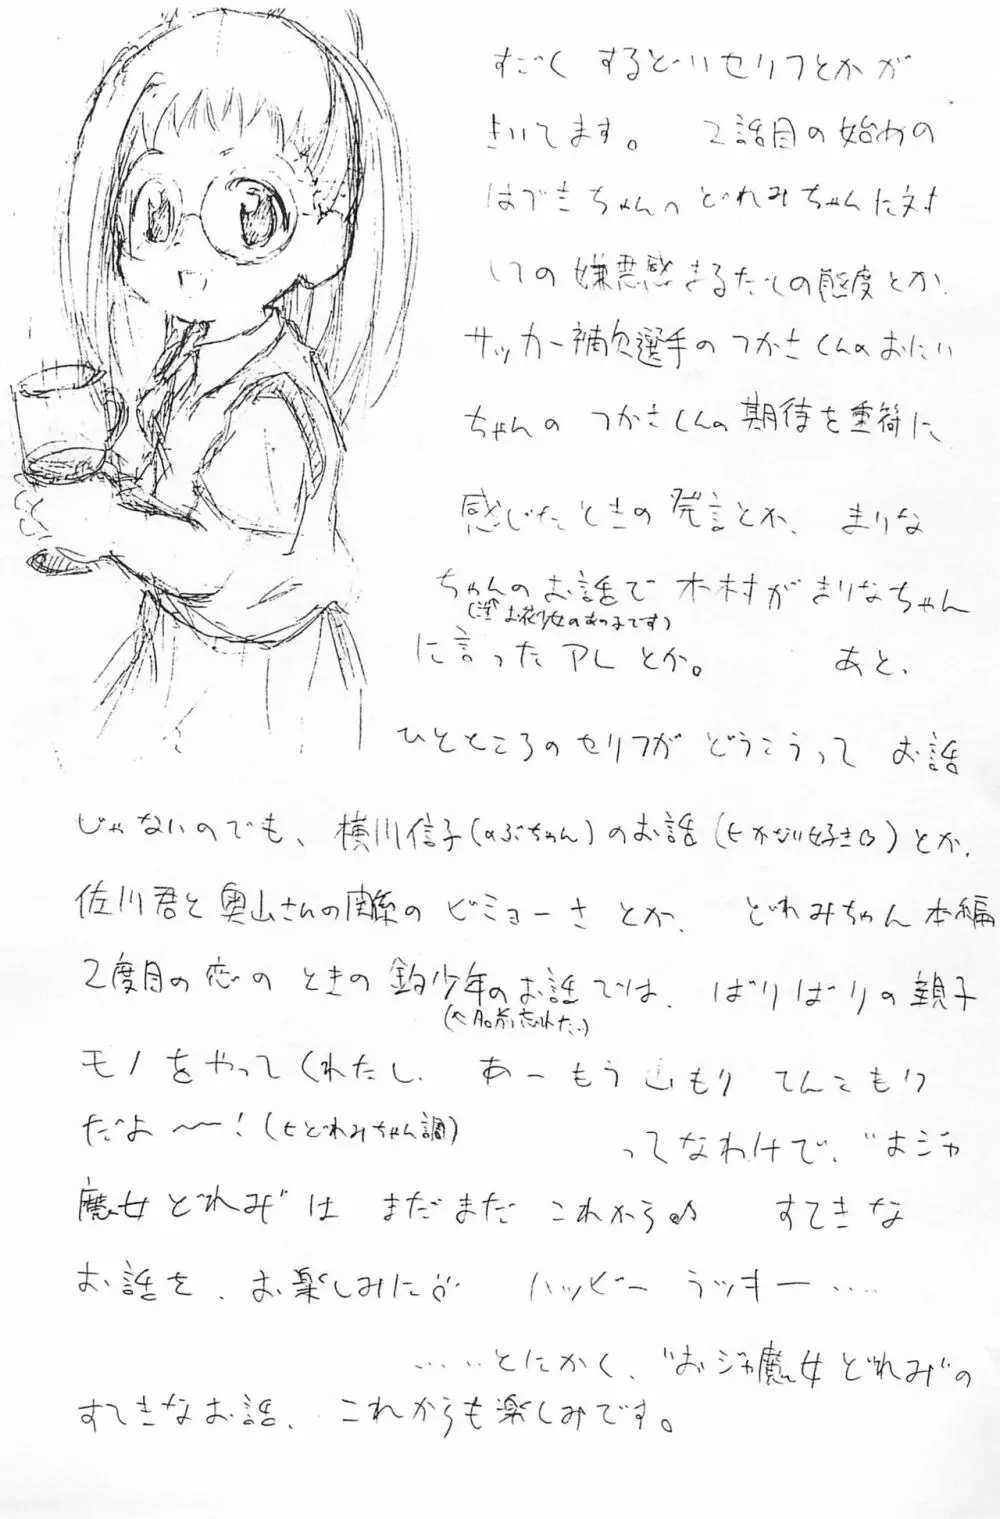 すごく するどいセリフとかが
きいてます。 2話目の始めの
はづきちゃんの どれみちゃんに対
しての嫌悪感まるだしの態度とか、
サッカー補欠選手の つかさくんのおにい
ちゃんの つかさくんの期待を重荷に
感じたときの発言とか、 まりな
ちゃんのお話で 木村がまりなちゃん
(注 お花少女のあの子です)
に言ったアレとか。 あと、
ひとところのセリフがどうこうって お話
じゃないのでも、横川信子(のぶちゃん)のお話(←かなり好き)とか、
佐川君と奥山さんの関係の ビミョーさ とか、 どれみちゃん本編
2度目の恋の ときの釣少年のお話では、 ばりばりの親子
(←名前忘れた。)
モノをやってくれたし、 あーもう 山もり てんこもり
だよ〜!(←どれみちゃん調)
ってなわけで、"おジャ
魔女どれみ"は まだまだ これから♪ すてきな
お話を、お楽しみに♡ ハッピー ラッキー‥‥
‥‥‥とにかく、"おジャ魔女どれみ"の
すてきなお話、 これからも楽しみです。